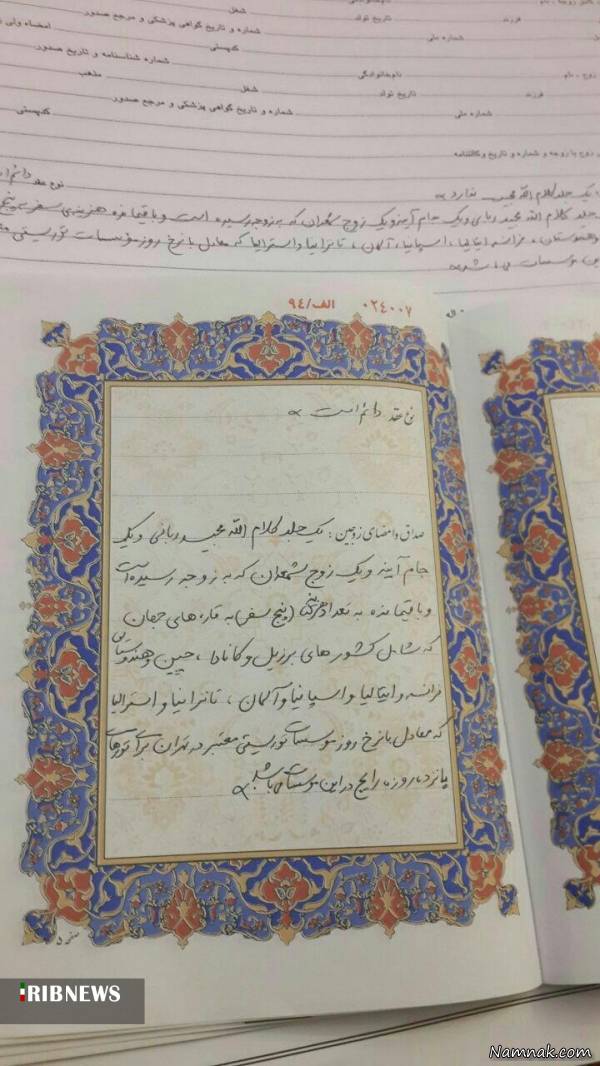 شغل
فرزند
تاریخ تولد
شماره و تاریخ گواهی پزشکی و مرجع صدور
شماره ملی
کدپستی
شماره شناسنامه و تاریخ صدور
نام خانوادگی
مذهب
فرزند
تاریخ تولد
شغل
شماره ملی
شماره و تاریخ گواهی پزشکی و مرجع صدور
کدپستی
زوج با زوجه و شماره و تاریخ وکالتنامه
نوع عقد دائم
یک جلد کلام الله مجید ندارد
جلد کلام الله مجید ربانی و یک جام آینه و یک زوج شمعدان که به زوجه رسیده است و باقیمانده هزینه‌ی سفر به پنج
وهندوستان، فرانسه و ایتالیا، اسپانیا، آلمان، تانزانیا و استرالیا که معادل با نرخ روز مؤسسات توریستی
این موسسات می باشد
الف/۹٤ ۰۲٤۰۰۷
نوع عقد دائم است
صداق و امضای زوجین : یک جلد کلام الله مجید ربانی و یک
جام آینه و یک زوج شمعدان که به زوجه رسیده است
و باقیمانده به تعداد (پنج سفر) به قاره های جهان
که شامل کشورهای برزیل و کانادا، چین و هندوستان
فرانسه و ایتالیا و اسپانیا و آلمان، تانزانیا و استرالیا
که معادل با نرخ روز موسسات توریستی معتبر در تهران برای تورهای
پانزده روزه رایج در این موسسات می باشد
صفحه ۵
IRIBNEWS
Namnak.com